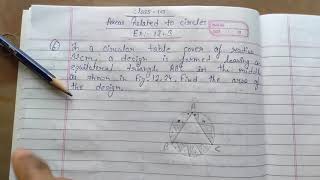 Class-10
Areas Related to circles
Ex:- 12.3
6) In a circular table cover of radius
32cm, a design is formed leaving an
equilateral triangle ABC in the middle
as shown in Fig. 12.24. Find the area of
the design.
A
B
C